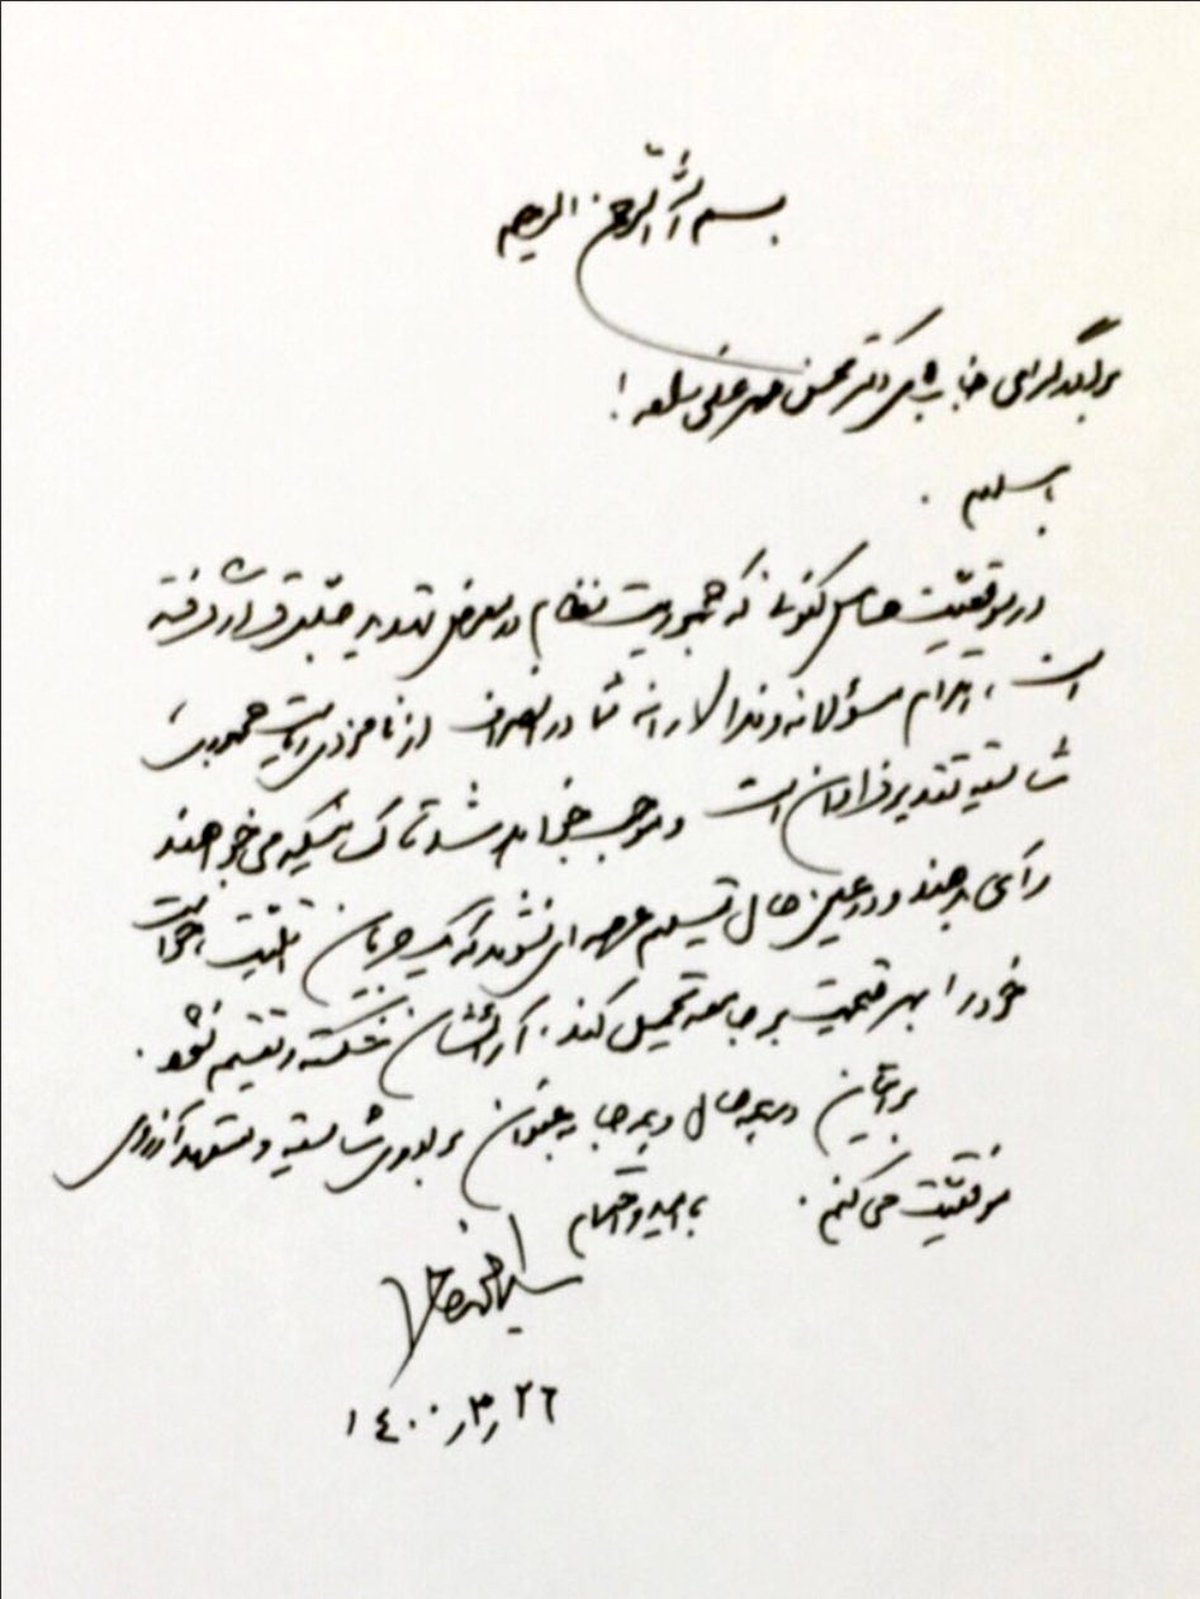 بسم الله الرحمن الرحیم
برادر گرامی جناب آقای دکتر محسن مهرعلیزاده!
با سلام.
در موقعیت حساس کنونی که جمهوریت نظام در معرض تهدید جدی قرار گرفته
است، اقدام مسؤلانه و مدالارانه شما در انصراف از نامزدی ریاست جمهوری
شایسته تقدیر فراوان است و موجب خواهد شد تا کسانیکه می خواهند
رأی بدهند و در عین حال تسلیم عرصه ای نشوند که یک جریان اقلیت، خواست
خود را بهر قیمت بر جامعه تحمیل کند. آرائشان شکسته و تقسیم نشود.
برایتان در همه حال و همه جا به عنوان برادری شایسته و متعهد آرزوی
موفقیت می کنم. با امید و احترام
سید محمد خاتمی
۱۴۰۰ر۳ر۲۶